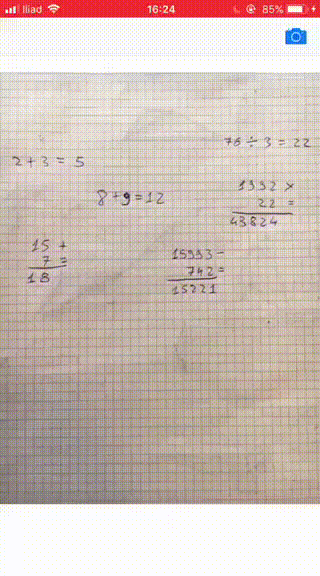 Iliad 16:24 85%
76 ÷ 3 = 22
2 + 3 = 5
8 + 9 = 12
1992 ×
22 =
43824
15 +
7 =
18
15993 -
742 =
15221